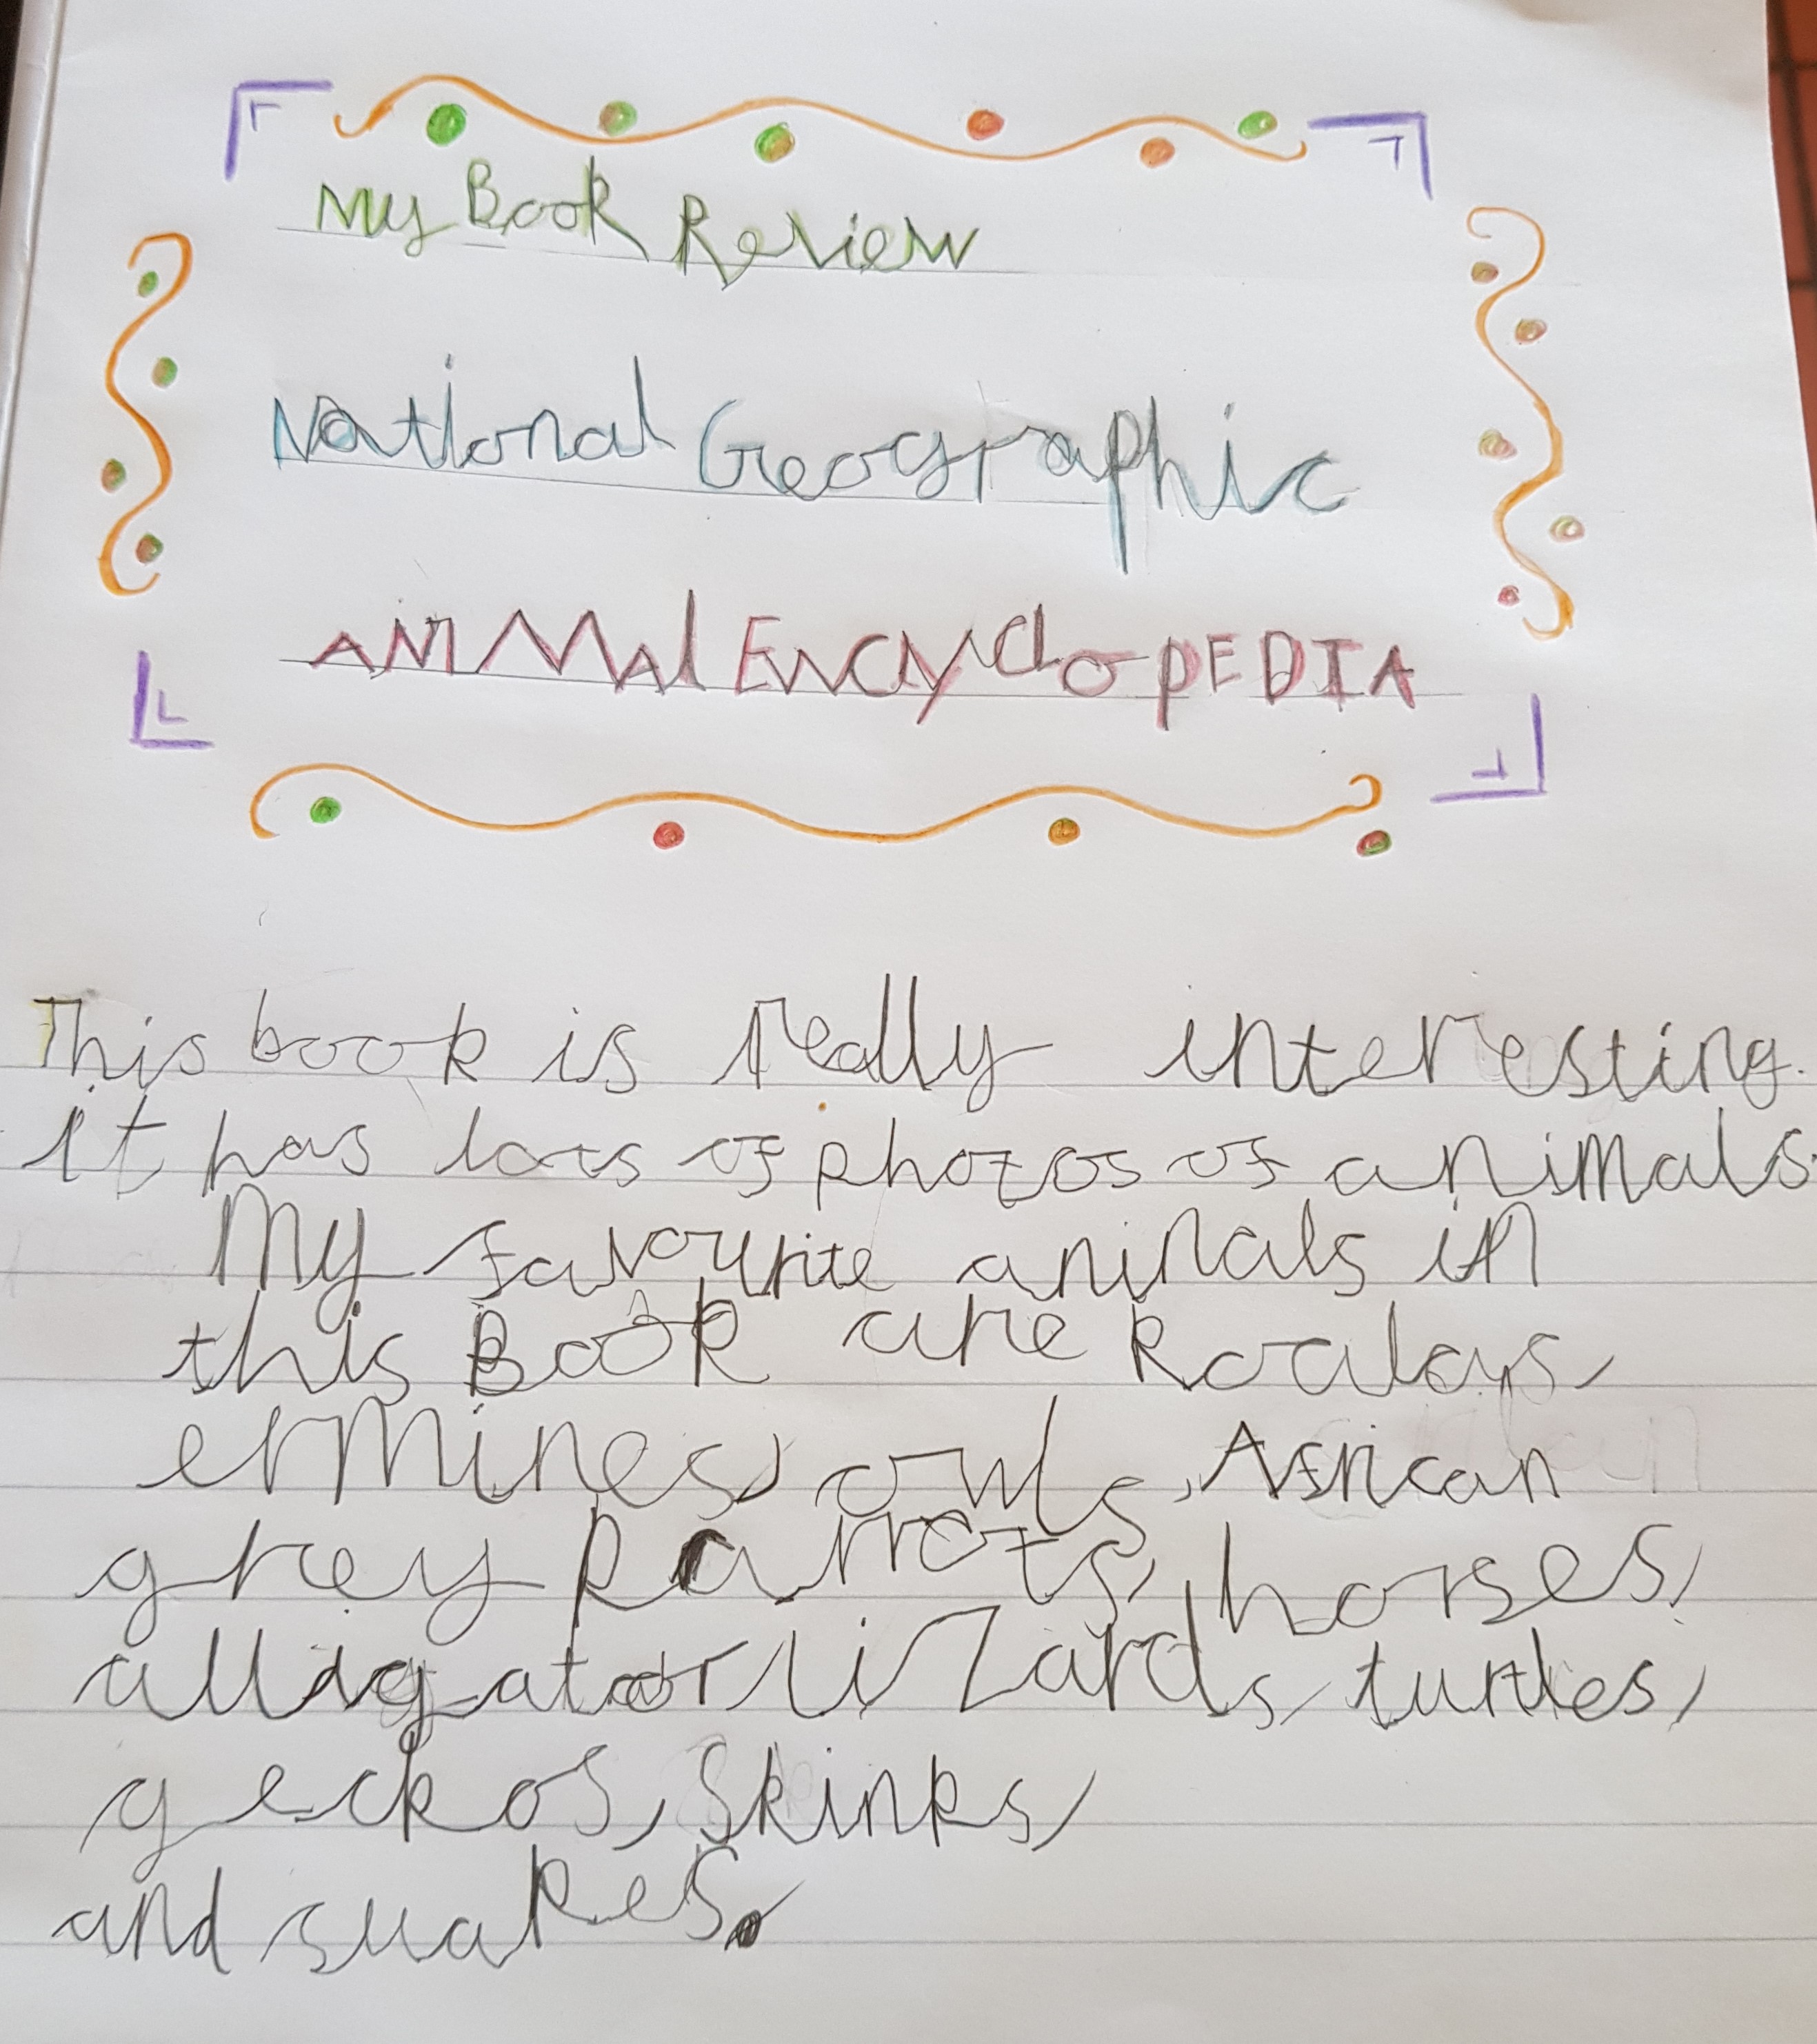 My Book Review
National Geographic
ANIMal ENCYClOPEDIA
This book is really interesting.
it has lots of photos of animals.
My favourite animals in
this Book are koalas,
ermines, owls, African
grey parrots, horses,
alligator lizards, turtles,
geckos, skinks,
and snakes.